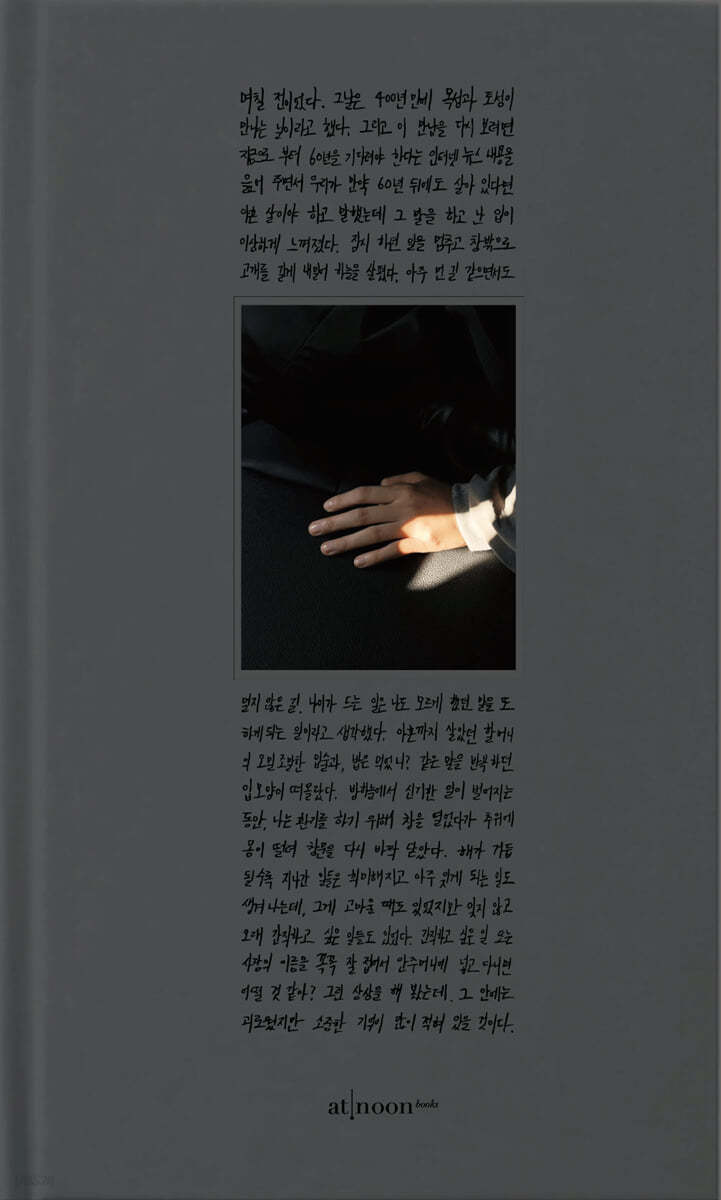 며칠 전이었다. 그날은 400년 만에 목성과 토성이
만나는 날이라고 했다. 그리고 이 만남을 다시 보려면
지금으로 부터 60년을 기다려야 한다는 인터넷 뉴스 내용을
읊어 주면서 우리가 만약 60년 뒤에도 살아 있다면
아흔 살이야 하고 말했는데 그 말을 하고 난 입이
이상하게 느껴졌다. 잠시 하던 일을 멈추고 창밖으로
고개를 길게 내밀어 하늘을 살폈다. 아주 먼 길 같으면서도
멀지 않은 길. 나이가 드는 일은 나도 모르게 했던 일을 또
하게 되는 일이라고 생각했다. 아흔까지 살았던 할머니
의 오밀조밀한 입술과, 밥은 먹었니? 같은 말을 반복하던
입모양이 떠올랐다. 밤하늘에서 신기한 일이 벌어지는
동안, 나는 환기를 하기 위해 창을 열었다가 추위에
몸이 떨려 창문을 다시 바짝 닫았다. 해가 거듭
될수록 지나간 일들은 희미해지고 아주 잊게 되는 일도
생겨 나는데, 그게 고마울 때도 있었지만 잊지 않고
오래 간직하고 싶은 일들도 있었다. 간직하고 싶은 일 또는
사람의 이름을 꼭꼭 잘 접어서 안주머니에 넣고 다니면
어떨 것 같아? 그런 상상을 해 봤는데. 그 안에는
괴로웠지만 소중한 기억이 많이 적혀 있을 것이다.
at noon books